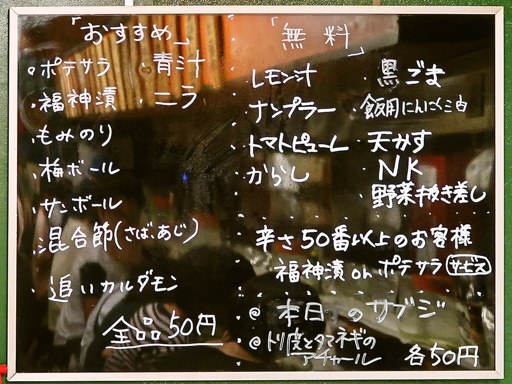 「おすすめ」
・ポテサラ ・青汁
・福神漬 ・ニラ
・もみのり
・梅ボール
・サンボール
・混合節(さば、あじ)
・追いカルダモン
全品50円
「無料」
・レモン汁 ・黒ごま
・ナンプラー ・飯用にんにく油
・トマトピューレ ・天かす
・からし ・NK
・野菜抜き差し
辛さ50番以上のお客様
福神漬 or ポテサラ サービス
@ 本日のサブジ
@ トリ皮とタマネギの
アチャール 各50円